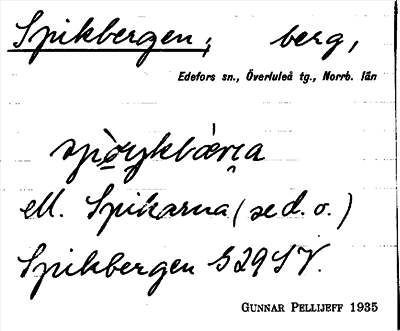 Spikbergen, berg,
Edefors sn., Överluleå tg., Norrb. län
ell. Spikarna (se d. o.)
Spikbergen S29SV.
GUNNAR PELLIJEFF 1935